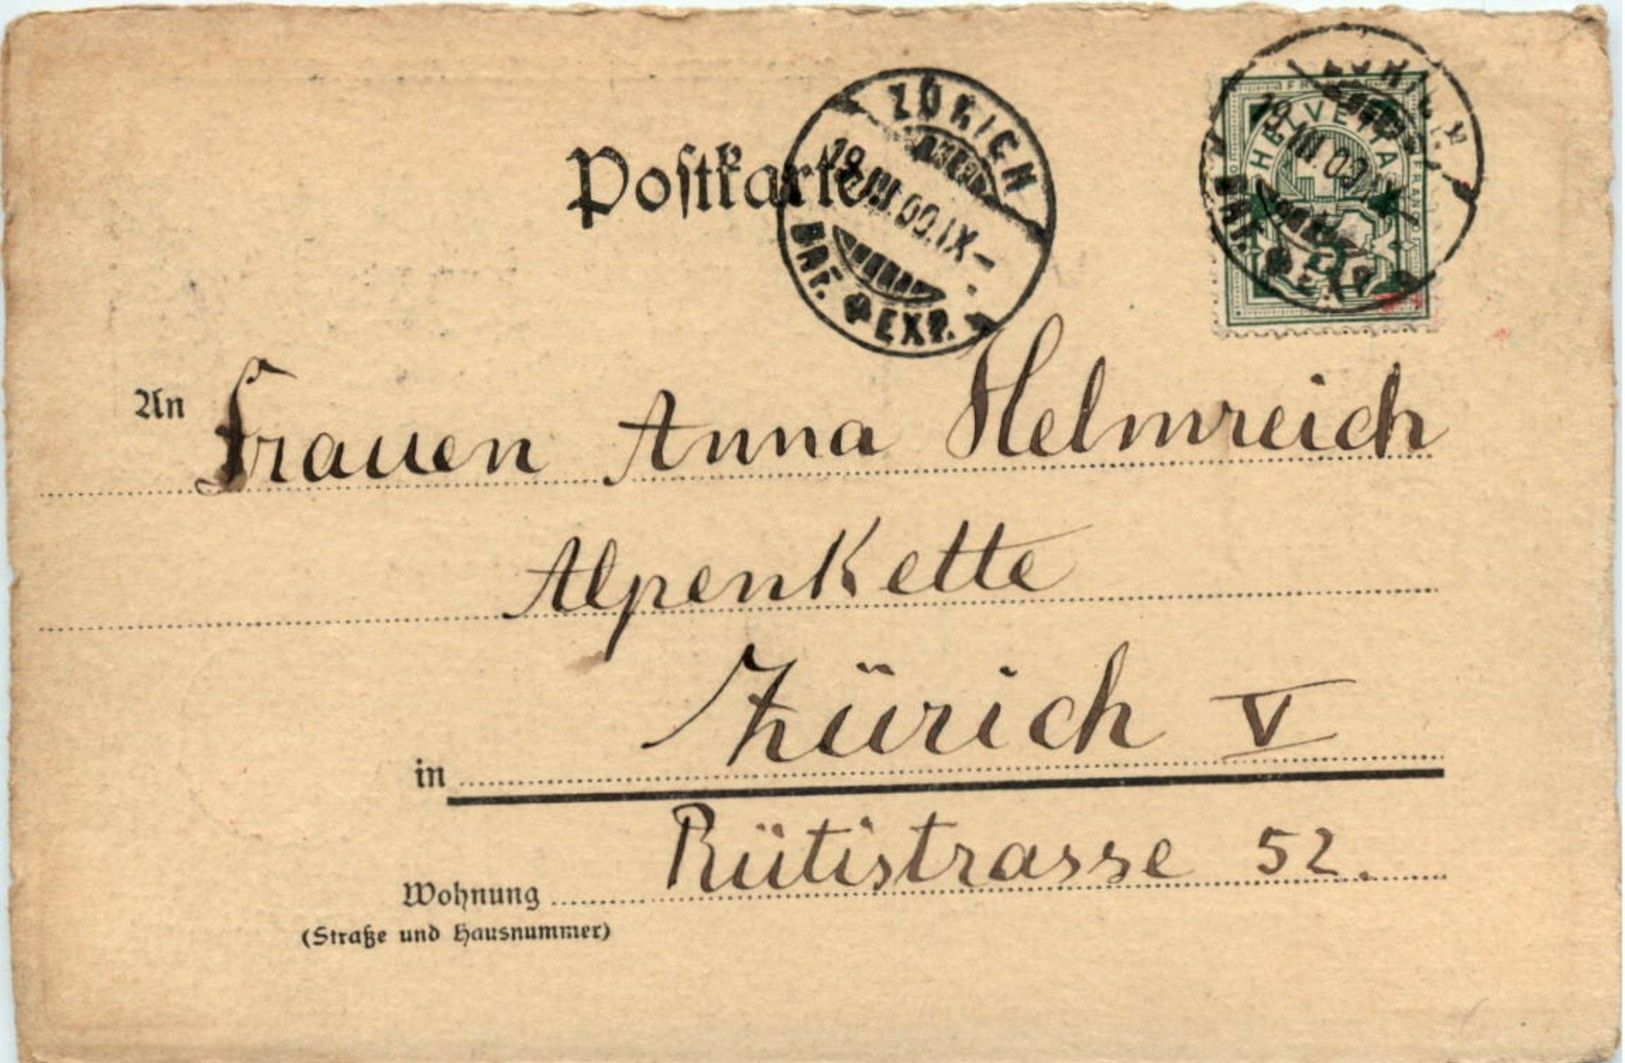 Postkarte
ZÜRICH
18.III.00.IX-
BRF. EXP.
HELVETIA
FRANCO
An Frauen Anna Helmreich
Alpenkette
in Zürich V
Rütistrasse 52.
Wohnung
(Straße und Hausnummer)